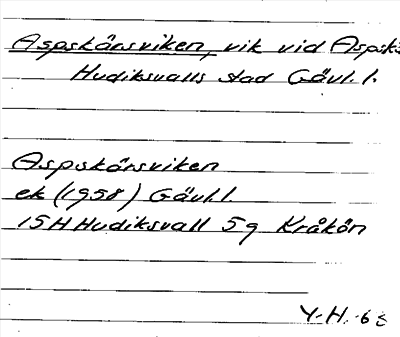 Aspskärsviken, vik vid Aspsk
Hudiksvalls stad Gävl. l.
Aspskärsviken
ek (1958) Gävl. l.
15H Hudiksvall 5g Kråkön
Y-H. -68